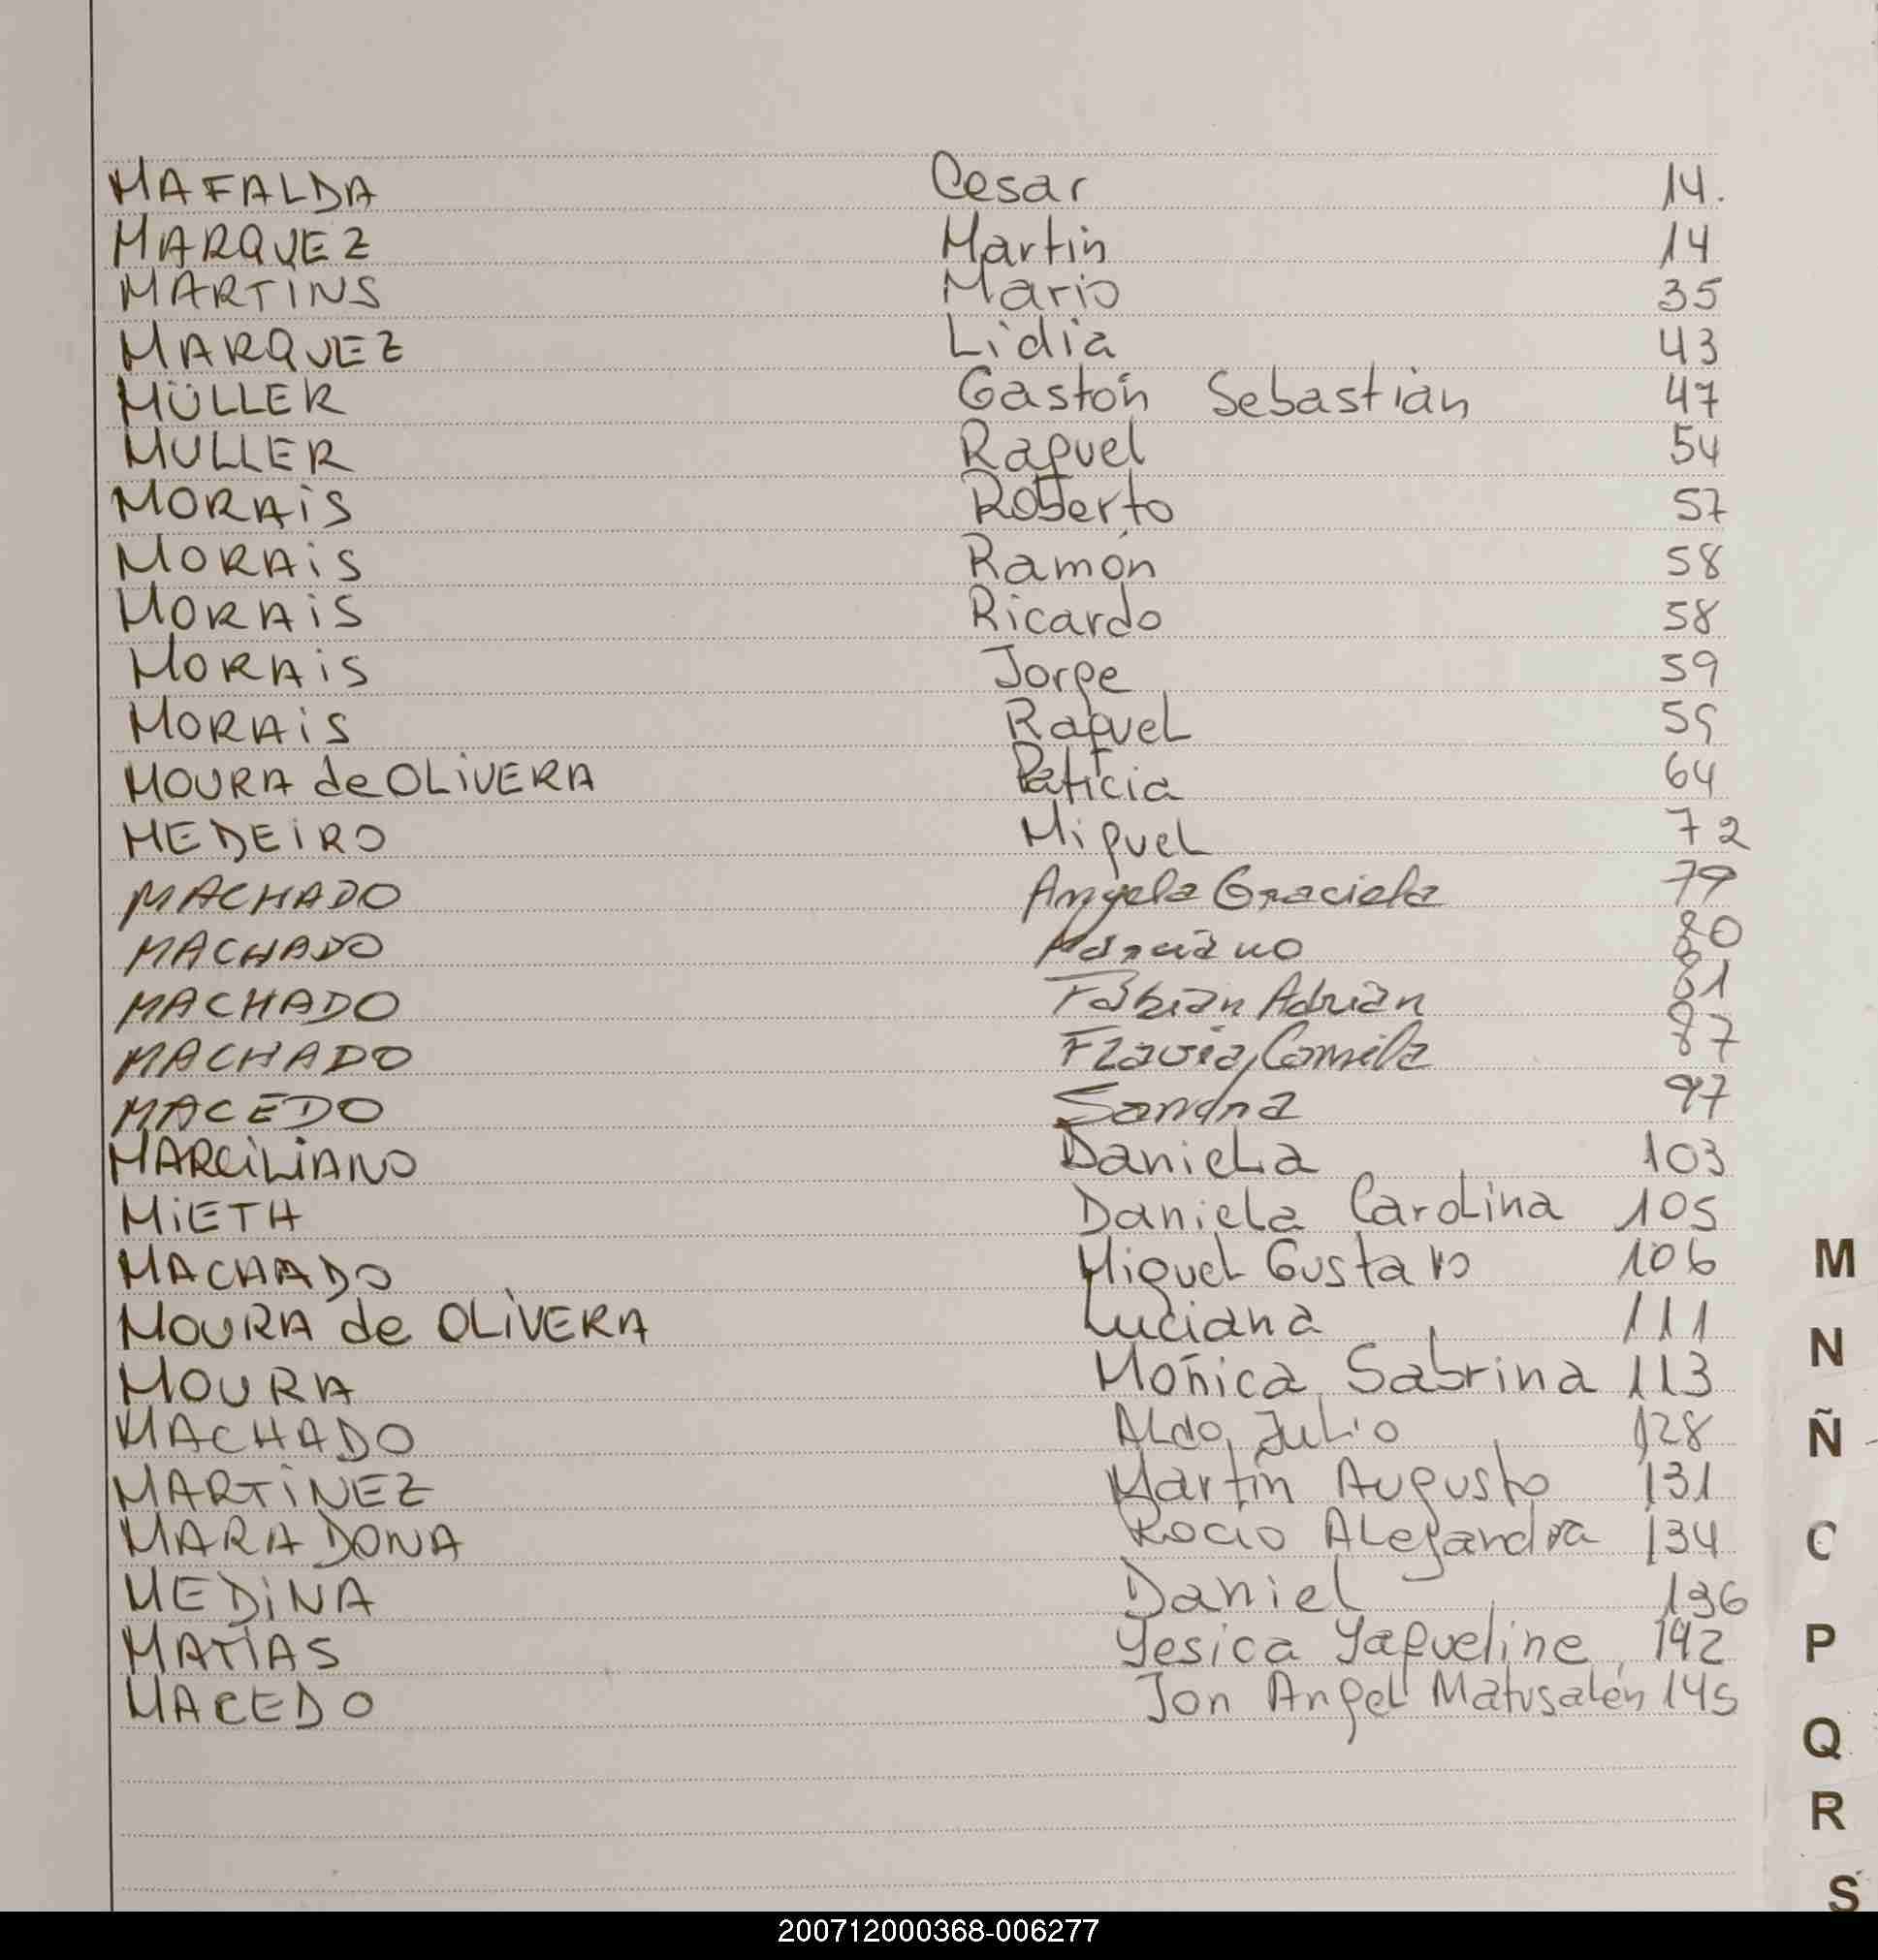 MAFALDA Cesar 14.
MARQUEZ Martín 14
MARTINS Mario 35
MARQUEZ Lidia 43
MÜLLER Gastón Sebastián 47
MULLER Raquel 54
MORAIS Roberto 57
MORAIS Ramón 58
MORAIS Ricardo 58
MORAIS Jorge 59
MORAIS Raquel 59
MOURA de OLIVERA Paticia 64
MEDEIRO Miguel 72
MACHADO Angela Graciela 79
MACHADO Marciano 80
MACHADO Fabián Adrián 81
MACHADO Flavia Camila 87
MACEDO Sandra 97
MARCILIANO Daniela 103
MIETH Daniela Carolina 105
MACHADO Miguel Gustavo 106
MOURA de OLIVERA Luciana 111
MOURA Mónica Sabrina 113
MACHADO Aldo Julio 128
MARTINEZ Martín Augusto 131
MARADONA Rocio Alejandra 134
MEDINA Daniel 136
MATIAS Yesica Yaqueline 142
MACEDO Jon Angel Matusalén 145
M
N
Ñ
C
P
Q
R
S
200712000368-006277